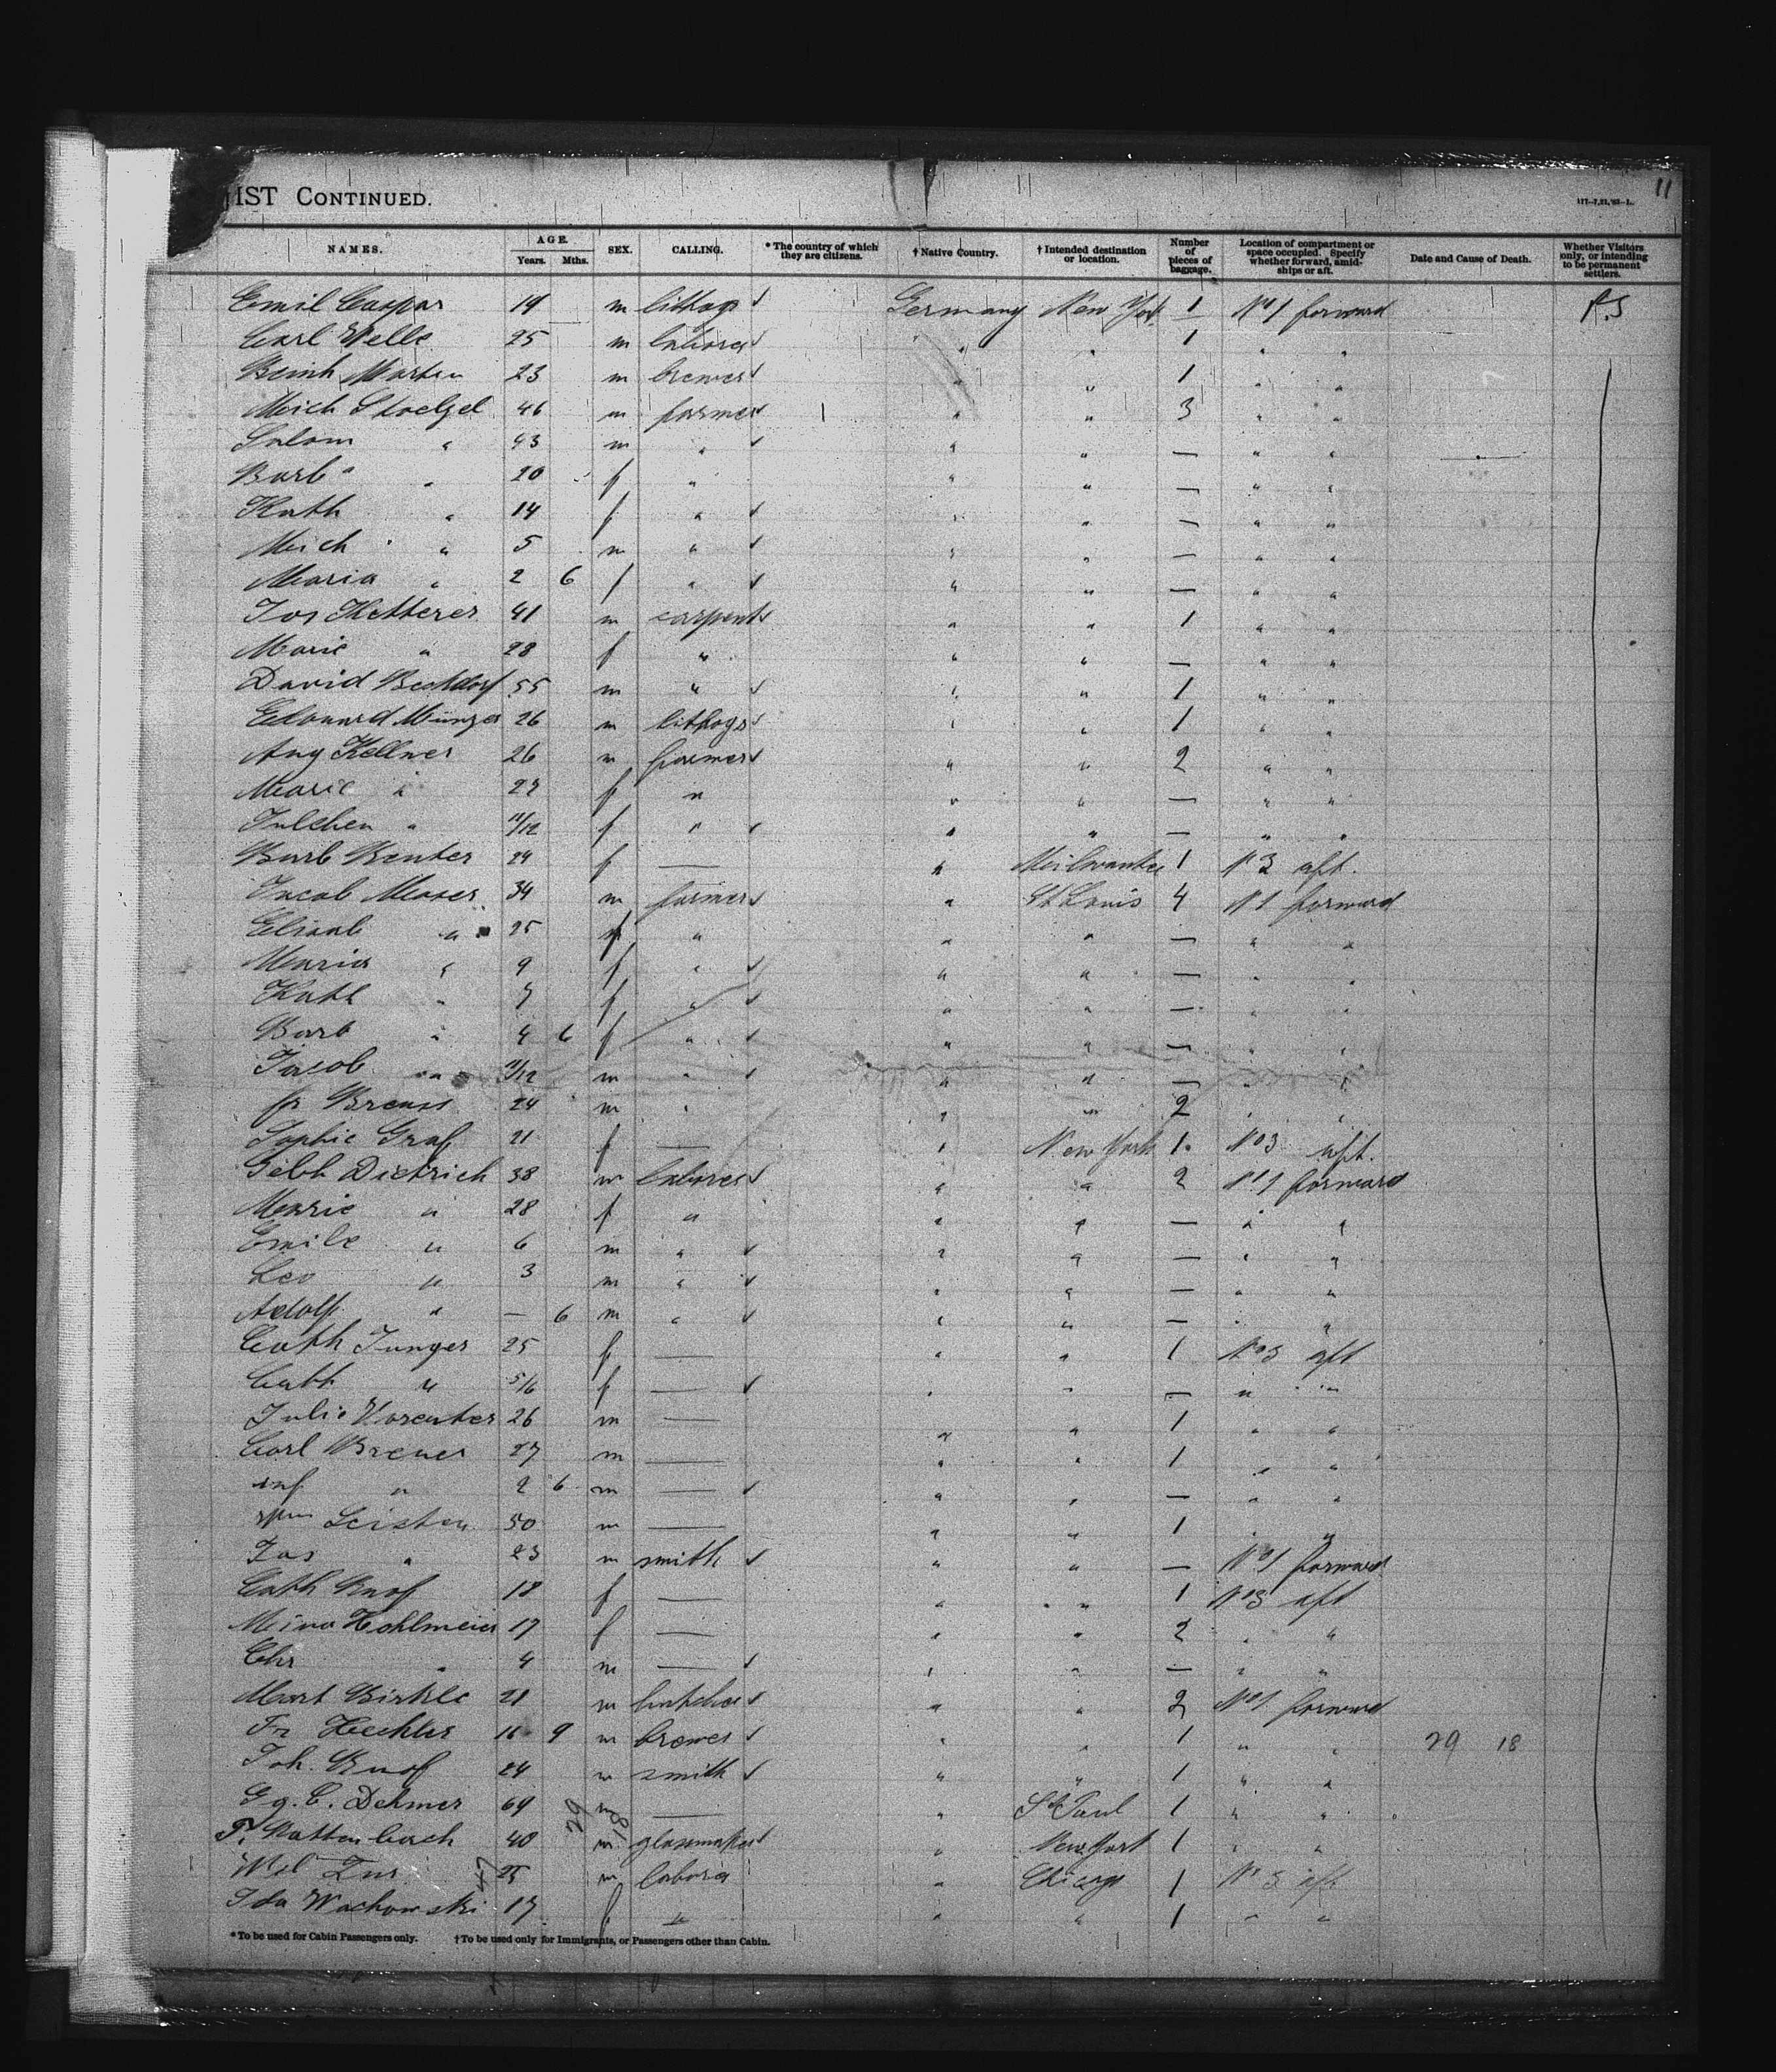 11
IST CONTINUED.
NAMES. AGE. Years. Mths. SEX. CALLING. * The country of which they are citizens. † Native Country. † Intended destination or location. Number of pieces of baggage. Location of compartment or space occupied. Specify whether forward, amidships or aft. Date and Cause of Death. Whether Visitors only, or intending to be permanent settlers.
Emil Caspar 19 m lithogr ✓ Germany New York 1 No 1 forward P.S
Carl Welle 25 m laborer ✓ " " 1 " "
Marten 23 m brewer ✓ " " 1 " "
Mich Stoelzel 46 m farmer ✓ " " 3 " "
Salom " 43 m " ✓ " " — " "
Barb " 20 f " " " — " "
Kath " 14 f " ✓ " " — " "
Mich " 5 m " ✓ " " — " "
Maria " 2 6 f " ✓ " " — " "
Jos Ketterer 41 m carpent ✓ " " 1 " "
Marie " 28 f " " " — " "
David 55 m " ✓ " " 1 " "
Edouard Münzer 26 m lithogr ✓ " " 1 " "
Aug Kellner 26 m farmer ✓ " " 2 " "
Marie " 27 f " " " — " "
Julchen " 11/12 f " ✓ " " — " "
Barb 24 f — " Milwaukee 1 No 3 aft.
Jacob Moser 34 m farmer ✓ " St Louis 4 No 1 forward
Elisab " 25 f " " " — " "
Maria " 9 f " ✓ " " — " "
Kath " 7 f " ✓ " " — " "
Barb " 4 6 f " ✓ " " — " "
Jacob " 11/12 m " ✓ " " — " "
24 m " " " 2 " "
Sophie Graf 21 f — " New York 1 No 3 aft.
Dietrich 38 m laborer ✓ " " 2 No 1 forward
Marie " 28 f " " " — " "
Emile " 6 m " ✓ " " — " "
Leo " 3 m " ✓ " " — " "
Adolf " — 6 m " ✓ " " — " "
Cath Junger 25 f — " " 1 No 3 aft
Cath " 5/6 f — ✓ " " — " "
Julie 26 m — " " 1 " "
Carl Brener 27 m — " " 1 " "
inf " 2 6 m — ✓ " " — " "
Leisten 50 m — " " 1 " "
Jos " 23 m smith ✓ " " — No 1 forward
Cath Knof 18 f — " " 1 No 3 aft
Mina Kohlmeier 17 f — " " 2 " "
Chr " 4 m — ✓ " " — " "
Mart Birkle 21 m butcher ✓ " " 2 No 1 forward
Fr Hechler 16 9 m brewer ✓ " " 1 " " 29 18
Joh. Knof 24 m smith ✓ " " 1 " "
Gg. C. Dehmer 64 m — " St Paul 1 " "
F. Kattenbach 40 29 m 18 glassmaker ✓ " New York 1 " "
47 25 m laborer " Chicago 1 No 3 aft
Ida Wachowski 17 f " " " 1 " "
* To be used for Cabin Passengers only. † To be used only for Immigrants, or Passengers other than Cabin.